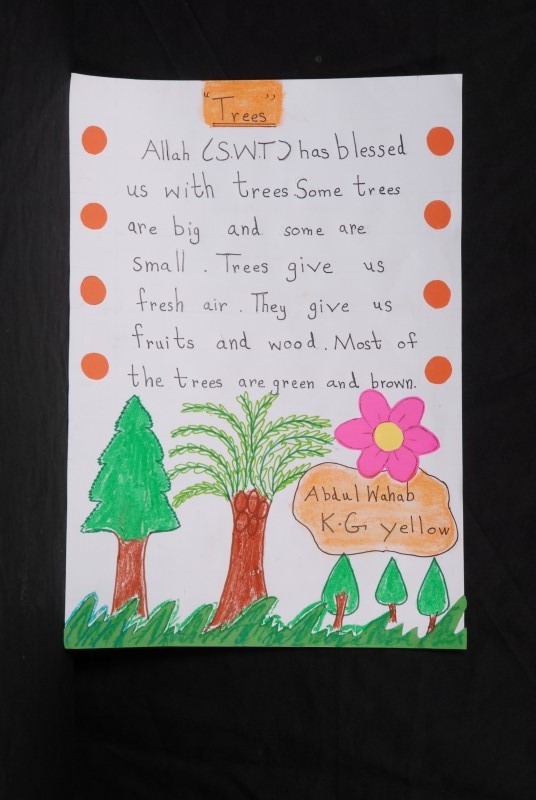 "Trees"
Allah (S.W.T) has blessed
us with trees.Some trees
are big and some are
small . Trees give us
fresh air . They give us
fruits and wood . Most of
the trees are green and brown.
Abdul Wahab
K.G yellow